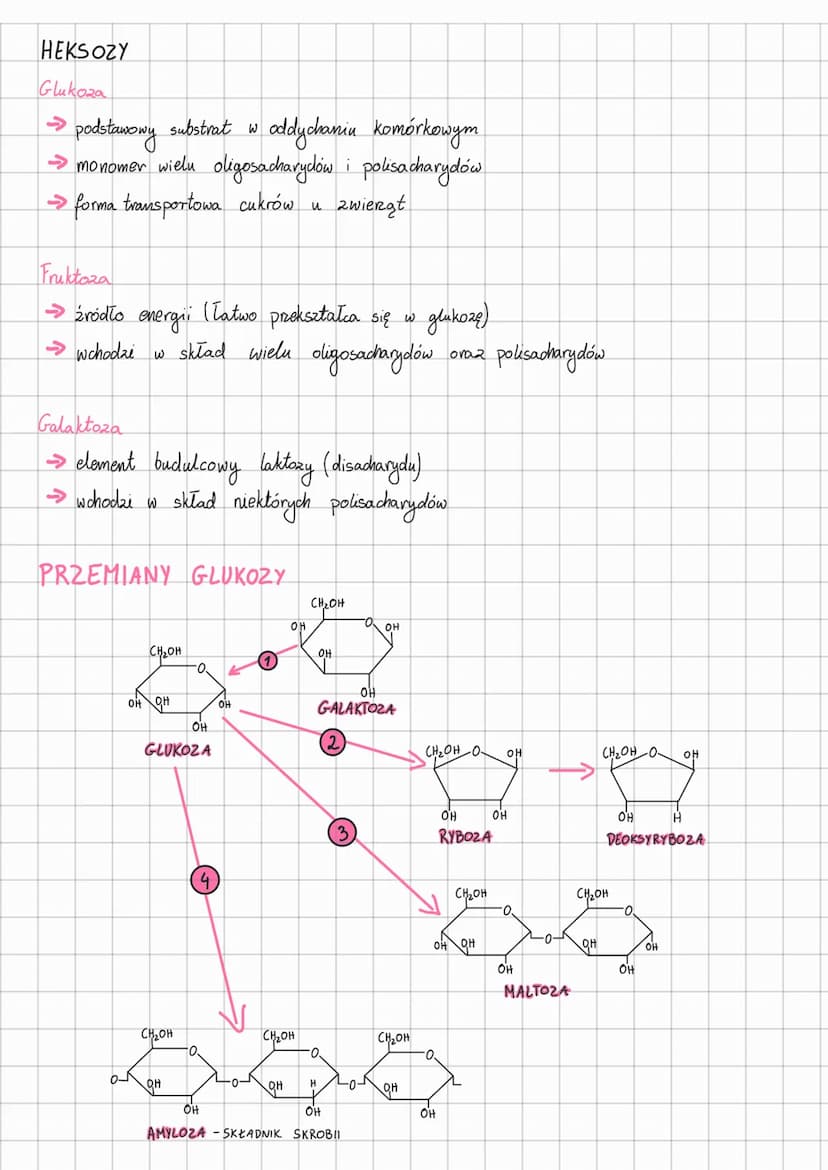 HEKSOZY
Glukoza
→ podstawowy substrat w oddychaniu komórkowym
→ monomer wielu oligosacharydów i polisacharydów
→ forma transportowa cukrów u zwierząt
Fruktoza
→ źródło energii (łatwo przekształca się w glukozę)
→ wchodzi w skład wielu oligosacharydów oraz polisacharydów
Galaktoza
→ element budulcowy laktozy (disacharydu)
→ wchodzi w skład niektórych polisacharydów
PRZEMIANY GLUKOZY
CH₂OH
OH O OH
OH
OH
GALAKTOZA
1
CH₂OH
O
OH OH OH
OH
GLUKOZA
2
CH₂OH O OH
OH OH
RYBOZA
CH₂OH O OH
OH H
DEOKSYRYBOZA
3
4
CH₂OH CH₂OH
O O
OH OH O OH OH
OH OH
MALTOZA
CH₂OH CH₂OH CH₂OH
O O O
O OH O OH H O OH
OH OH OH
AMYLOZA - SKŁADNIK SKROBII